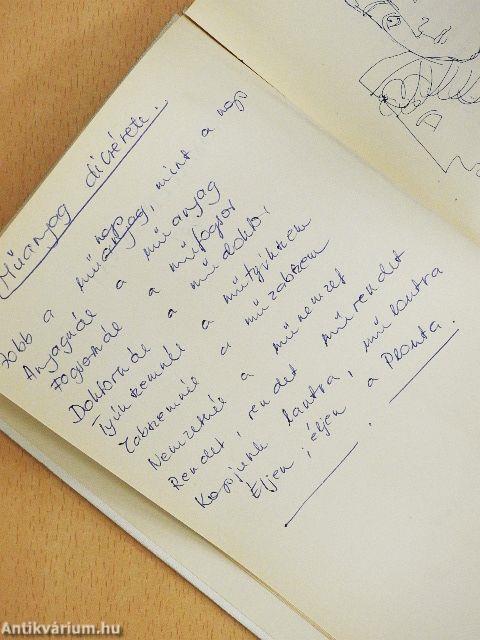 Műanyag dícsérete...
Jobb a műnap, mint a nap
Anyagnál a műanyag
Fogsornál a műfogsor
Doktornál a műdoktor
Tyúkszemnél a műtyúkszem
Zabszemnél a műzabszem
Nemzetnél a műnemzet
Rendet, rendet műrendet
Kapjunk lantra, műlantra
Éljen, éljen a Pronta.
Antikvárium.hu